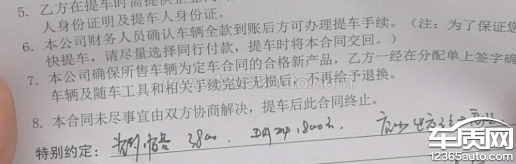 5. 乙方在提车时需提供企业
人身份证明及提车人身份证。
6. 本公司财务人员确认车辆全款到账后方可办理提车手续。(注: 为了保证您
快提车，请尽量选择同行付款，提车时将本合同交回。)
7. 本公司确保所售车辆为定车合同的合格新产品，乙方一经在分配单上签字确
车辆及随车工具和相关手续完好无损后，不再给予退换。
8. 本合同未尽事宜由双方协商解决，提车后此合同终止。
特别约定: 3800
车质网
12365auto.com